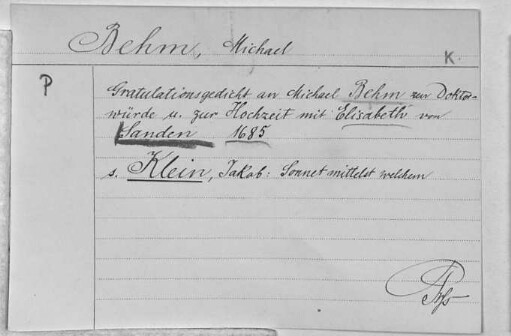 Behm, Michael
K.
P
Gratulationsgedicht an Michael Behm zur Doktor-
würde u. zur Hochzeit mit Elisabeth von
Sanden 1685
s. Klein, Jakob: Sonnet mittelst welchem